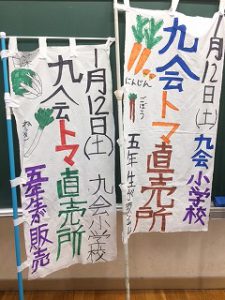 1月12日(土)
九会小学校
九会トマ直売所
五年生が販売
ねぎ
1月12日(土)
九会小学校
九会トマ直売所
五年生が
にんじん
ごぼう